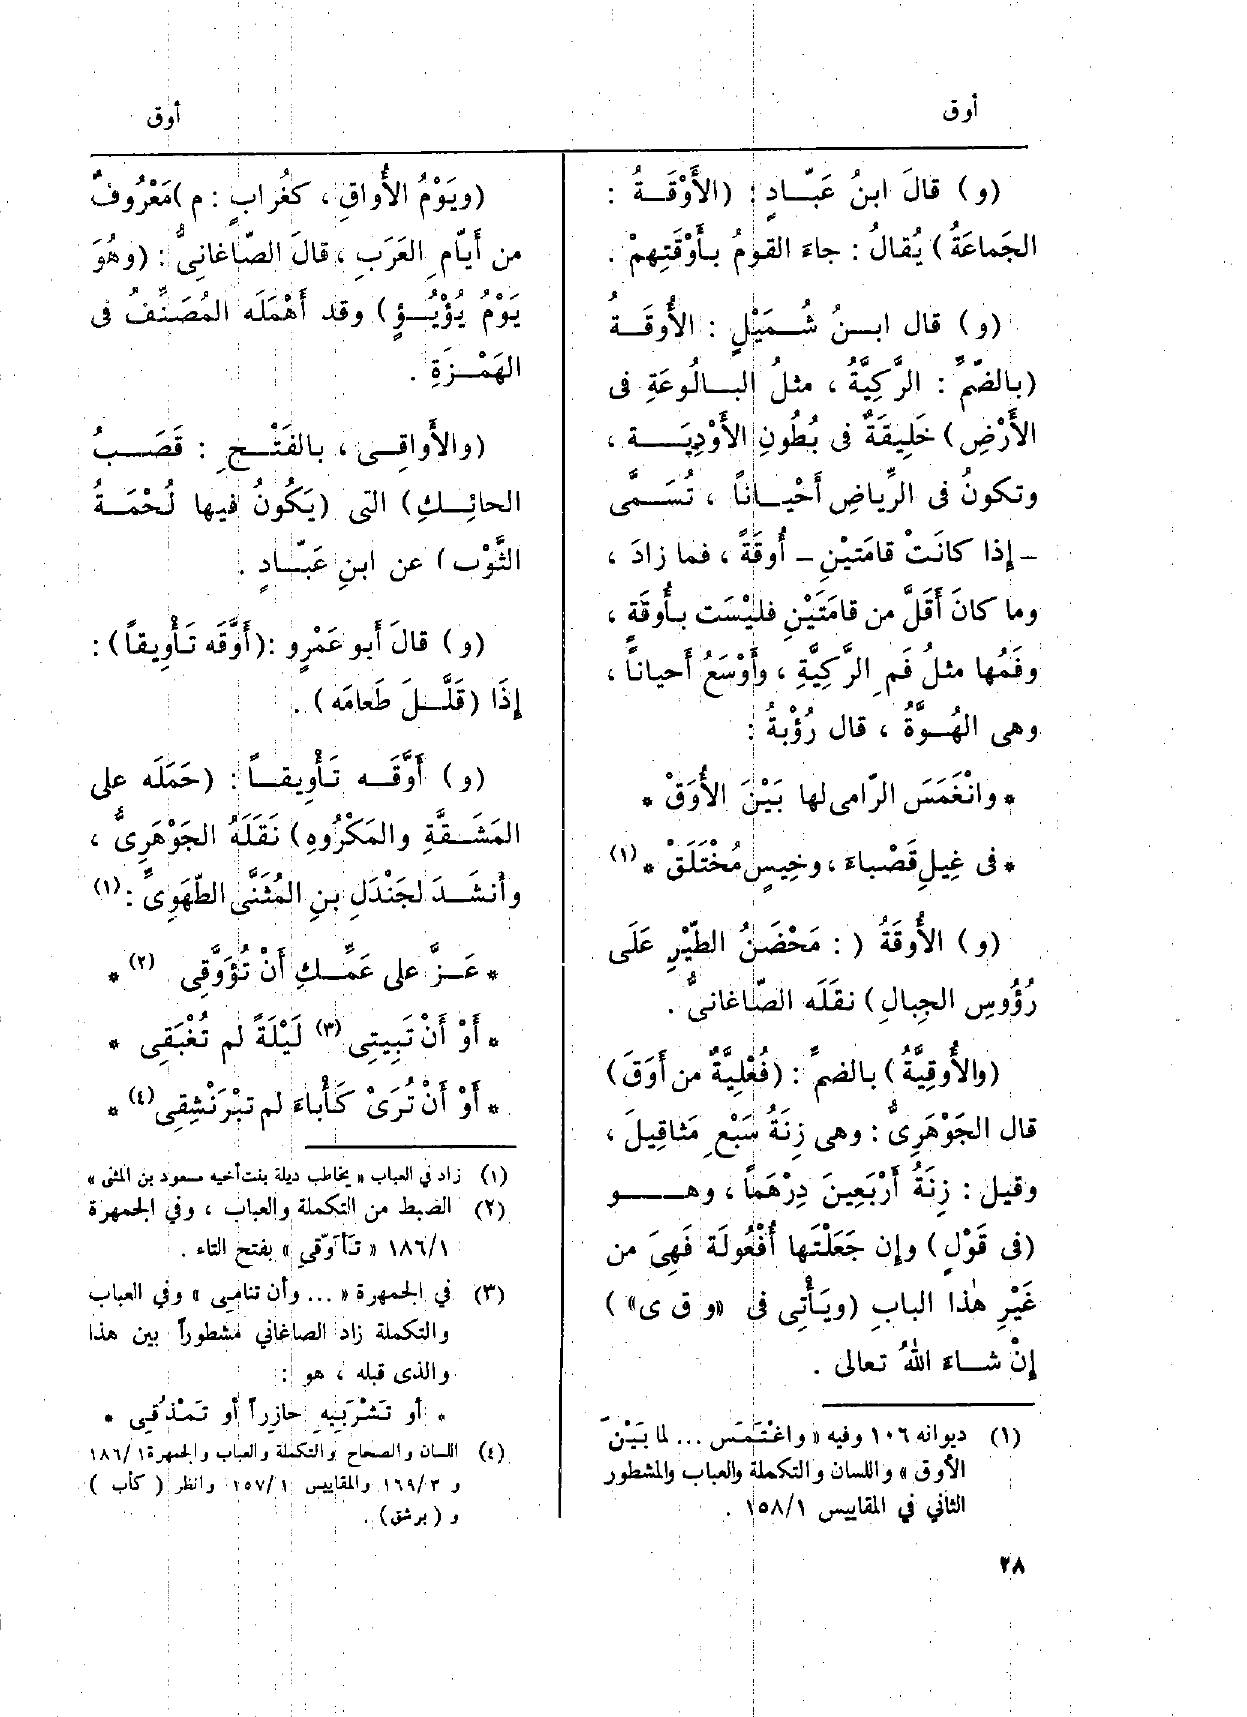 أوق
أوق
(و) قالَ ابنُ عَبّادٍ : (الأَوْقَةُ :
الجَماعَةُ) يُقالُ : جاءَ القومُ بأَوْقَتِهِمْ .
(و) قال ابنُ شُمَيْلٍ : الأُوقَةُ
(بالضّمِّ : الرَّكِيَّةُ ، مثلُ البالُوعَةِ فى
الأَرْضِ) خَلِيقَةٌ فى بُطُونِ الأَوْدِيَةِ ،
وتكونُ فى الرِّياضِ أَحْياناً ، تُسَمَّى
- إذا كانَتْ قامَتَيْنِ - أُوقَةً ، فما زادَ ،
وما كانَ أَقَلَّ من قامَتَيْنِ فليْسَت بأُوقَةٍ ،
وفَمُها مثلُ فَمِ الرَّكِيَّةِ ، وأَوْسَعُ أَحياناً ،
وهى الهُوَّةُ ، قال رُؤْبةُ :
* وانْغَمَسَ الرّامى لها بَيْنَ الأُوَقْ *
* فى غِيلِ قَصْباءَ ، وخِيسٍ مُخْتَلَقْ * (١)
(و) الأُوقَةُ ( : مَحْضَنُ الطَّيْرِ عَلَى
رُؤُوسِ الجِبالِ) نقَلَه الصّاغانىُّ .
(والأُوقِيَّةُ) بالضمِّ : (فُعْلِيَّةٌ من أَوَقَ)
قال الجَوْهَرِىُّ : وهى زِنَةُ سَبْعِ مَثاقِيلَ ،
وقيل : زِنَةُ أَرْبَعِينَ دِرْهَماً ، وهو
(فى قَوْلٍ) وإن جَعَلْتَها أُفْعُولَة فَهِىَ من
غَيْرِ هٰذا البابِ (ويَأْتِى فى «و ق ى» )
إنْ شاءَ اللهُ تعالى .
(١) ديوانه ١٠٦ وفيه « واغتَمَس ... لما بَيْنَ
الأوق » واللسان والتكملة والعباب والمشطور
الثاني في المقاييس ١٥٨/١ .
(ويَوْمُ الأُواقِ ، كغُرابٍ : م) مَعْرُوفٌ
من أَيّامِ العَرَبِ ، قالَ الصّاغانىُّ : (وهُوَ
يَوْمُ يُؤْيُؤٍ) وقد أَهْمَلَه المُصَنِّفُ فى
الهَمْزَةِ .
(والأَواقِى ، بالفَتْحِ : قَصَبُ
الحائِكِ) التى (يَكُونُ فيها لُحْمَةُ
الثَّوْب) عن ابنِ عَبّادٍ .
(و) قالَ أبو عَمْرٍو : (أَوَّقَه تَأْوِيقاً) :
إذَا (قَلَّلَ طَعامَه) .
(و) أَوَّقَه تَأْوِيقاً : (حَمَلَه على
المَشَقَّةِ والمَكْرُوهِ) نَقَلَهُ الجَوْهَرِىُّ ،
وأَنشَدَ لجَنْدَلِ بنِ المُثَنَّى الطّهَوِىِّ : (١)
* عَزَّ على عَمِّكِ أَنْ تُؤَوَّقِى (٢) *
* أَوْ أَنْ تَبِيتِى (٣) لَيْلَةً لم تُغْبَقِى *
* أَوْ أَنْ تُرَىْ كَأْباءَ لم تبْرَنْشِقِى (٤) *
(١) زاد في العباب « يخاطب ديلة بنت أخيه مسعود بن المثنى »
(٢) الضبط من التكملة والعباب ، وفي الجمهرة
١٨٦/١ « تَأَوَّقِي » بفتح التاء .
(٣) في الجمهرة « ... وأن تنامِي » وفي العباب
والتكملة زاد الصاغاني مشطوراً بين هذا
والذى قبله ، هو :
* أو تَشْرَبِيهِ حازِراً أو تَمْذُقِى *
(٤) اللسان والصحاح والتكملة والعباب والجمهرة ١٨٦/١
و ١٦٩/٣ والمقاييس ١٥٧/١ وانظر ( كأب )
و ( برشق) .
٢٨